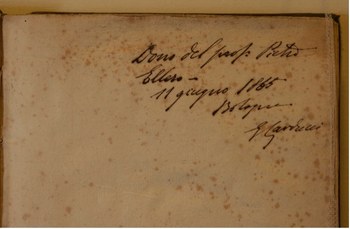 Dono del prof Pietro
Ellero –
11 giugno, 1865
Bologna
G Carducci